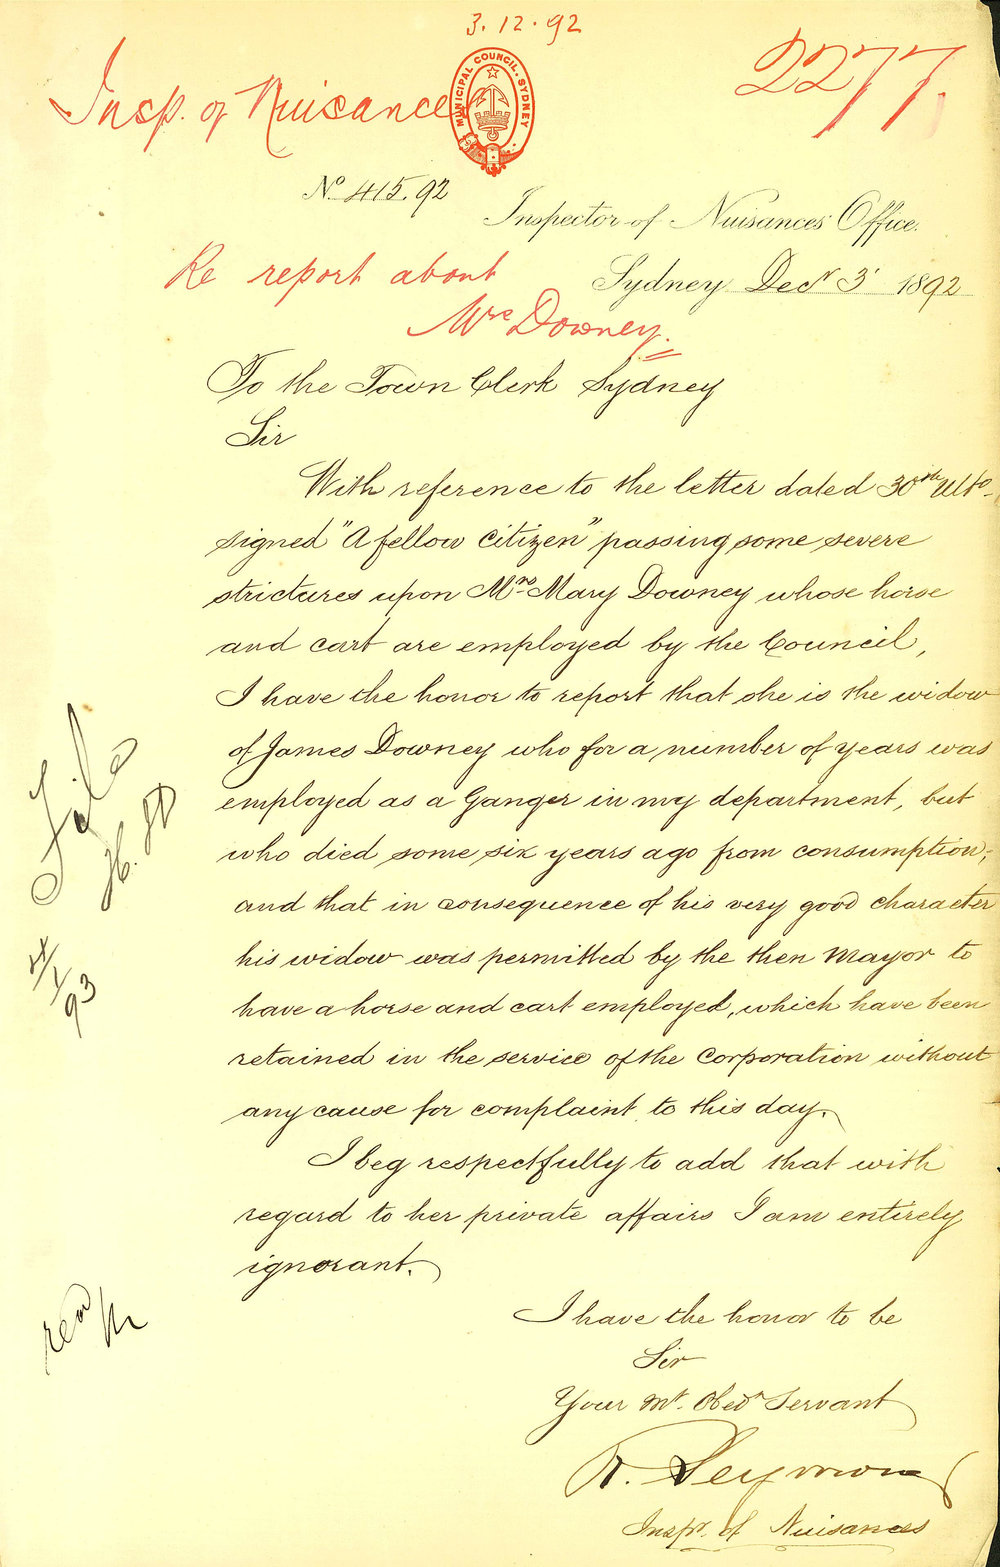 3.12.92
2277.
Insp. of Nuisances
MUNICIPAL COUNCIL. SYDNEY
No 415.92
Inspector of Nuisances Office.
Re report about
Sydney Decr 3 1892
Mrs Downey.
To the Town Clerk Sydney
Sir
With reference to the letter dated 30th Ulto.
signed "A fellow Citizen" passing some severe
strictures upon Mrs Mary Downey whose horse
and cart are employed by the Council,
I have the honor to report that she is the widow
of James Downey who for a number of years was
employed as a Ganger in my department, but
who died some six years ago from consumption;
and that in consequence of his very good character
his widow was permitted by the then Mayor to
have a horse and cart employed, which have been
retained in the service of the Corporation without
any cause for complaint to this day.
I beg respectfully to add that with
regard to her private affairs I am entirely
ignorant.
I have the honor to be
Sir
Your Mt. Obedt Servant
R. Seymour
Inspr. of Nuisances
File
4/1/93
read